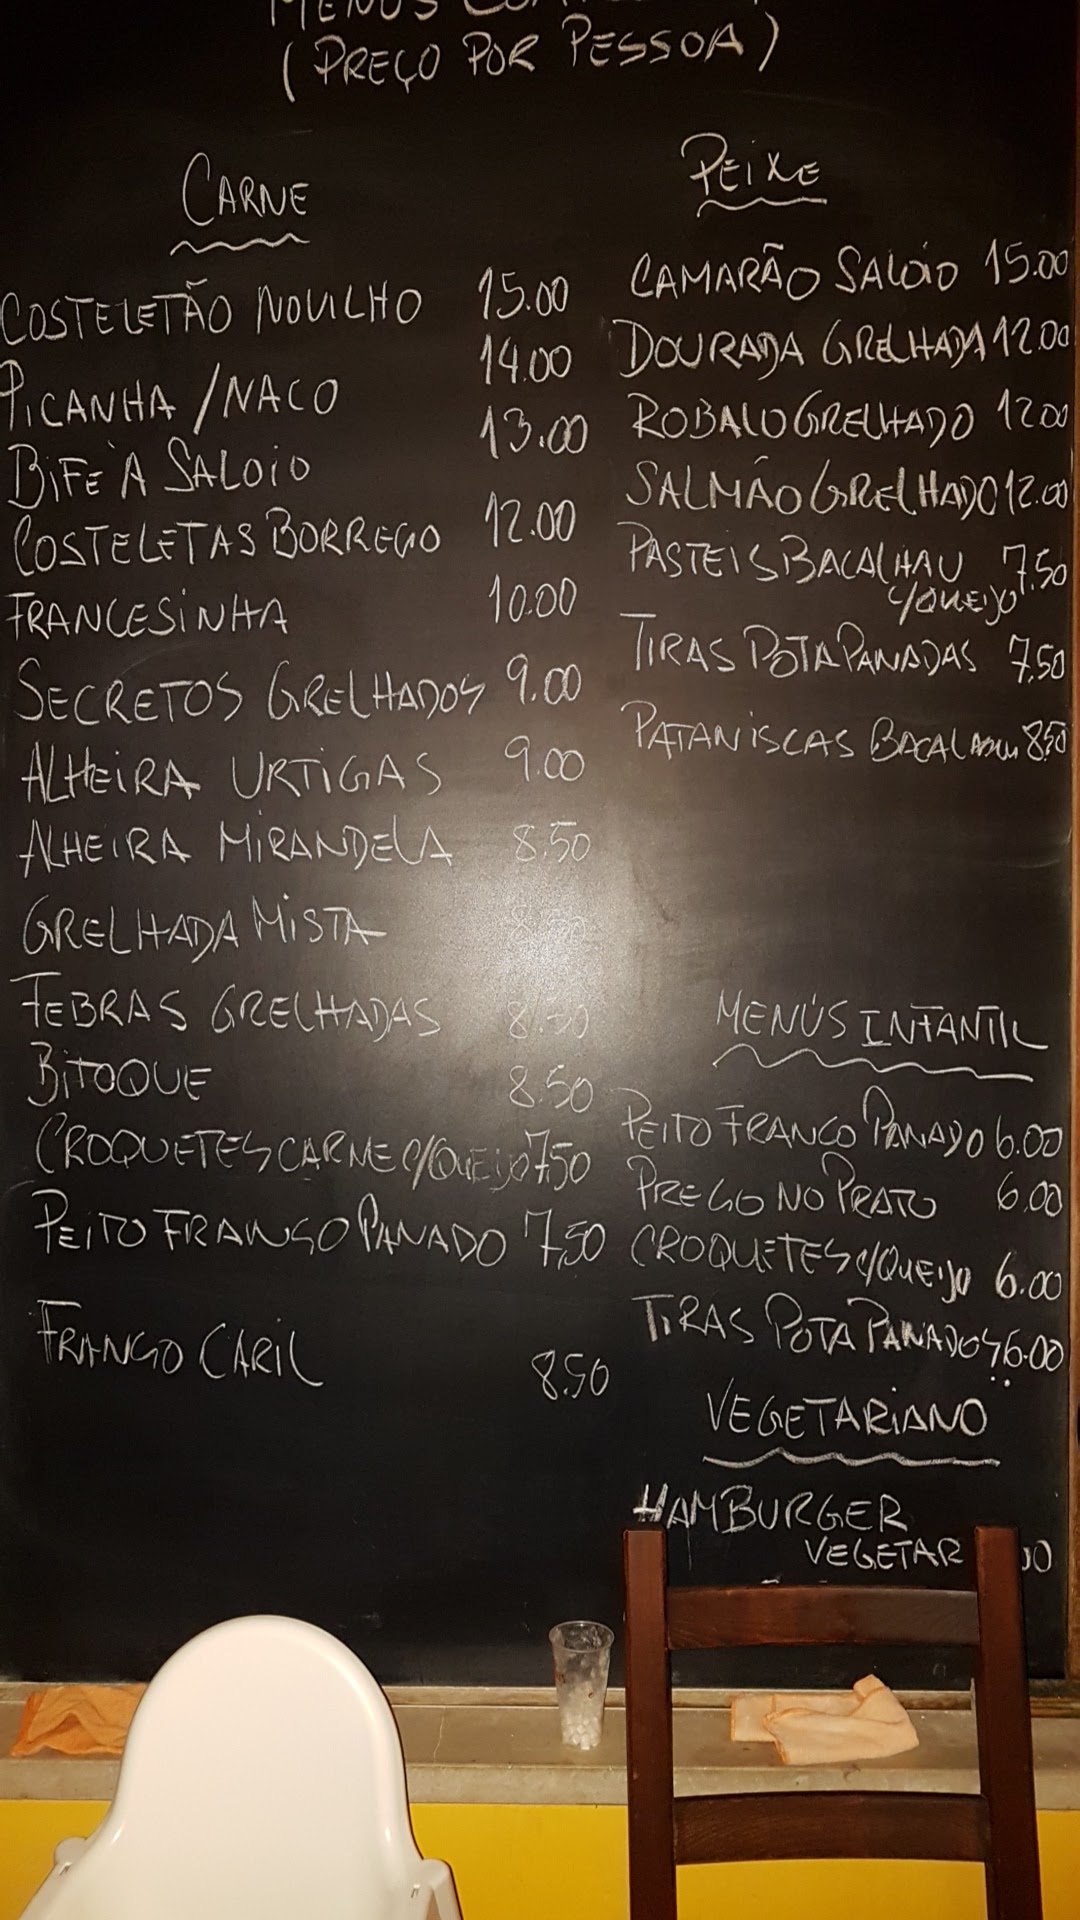 MENUS
(PREÇO POR PESSOA)
CARNE
COSTELETÃO NOVILHO 15.00
PICANHA / NACO 14.00
BIFE À SALOIO 13.00
COSTELETAS BORREGO 12.00
FRANCESINHA 10.00
SECRETOS GRELHADOS 9.00
ALHEIRA URTIGAS 9.00
ALHEIRA MIRANDELA 8.50
GRELHADA MISTA 8.50
FEBRAS GRELHADAS 8.50
BITOQUE 8.50
CROQUETES CARNE C/QUEIJO 7,50
PEITO FRANGO PANADO 7,50
FRANGO CARIL 8.50
PEIXE
CAMARÃO SALOIO 15.00
DOURADA GRELHADA 12.00
ROBALO GRELHADO 12.00
SALMÃO GRELHADO 12.00
PASTEIS BACALHAU 7.50
C/QUEIJO
TIRAS POTA PANADAS 7.50
PATANISCAS BACALHAU 8.50
MENÚS INFANTIL
PEITO FRANGO PANADO 6.00
PREGO NO PRATO 6.00
CROQUETES C/QUEIJO 6.00
TIRAS POTA PANADOS 6.00
VEGETARIANO
HAMBURGER
VEGETAR